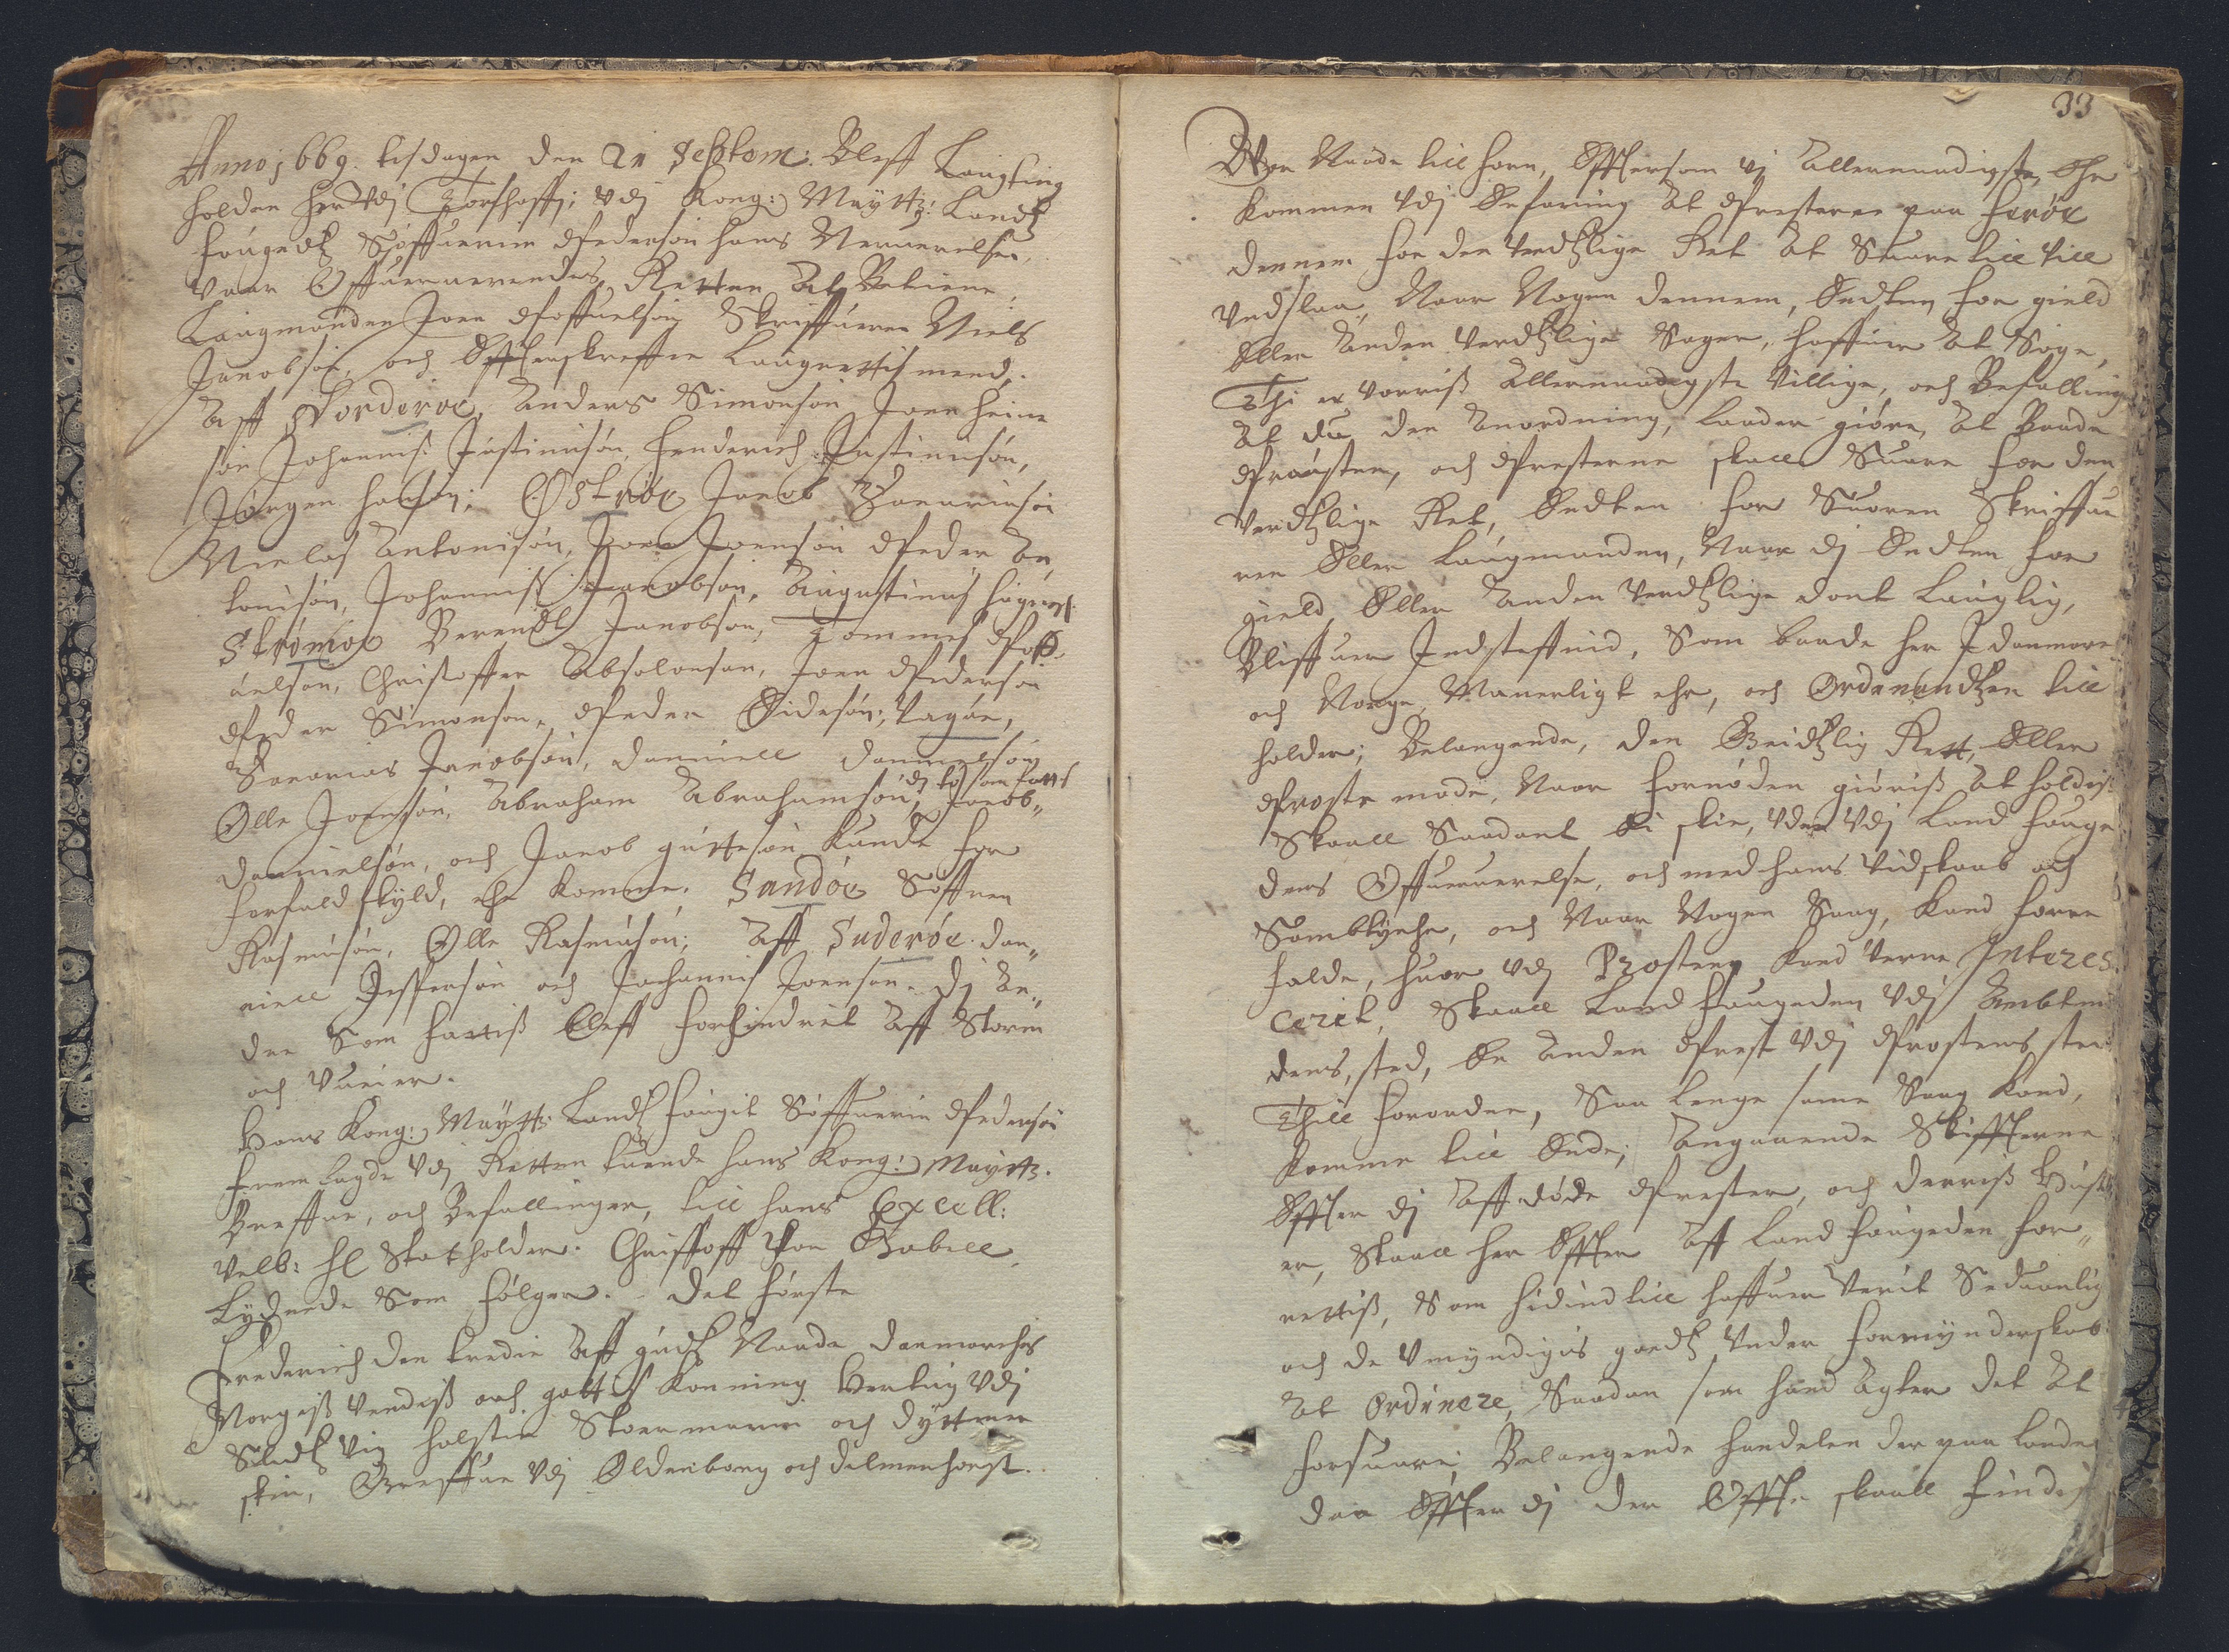 Anno 1669. tisdagen den 21 Septem: Bleff Laugting
holden her Udj Torshaffn; Udj Kong: Maÿttz: Landtz
fougedtz Søffueren Pedersøn hans Neruerelse,
Vaar Offueruerendes Retten At Betiene,
Laugmanden Joen Pofuelsøn, Skriffueren Niels
Jacobsøn, och Effterskreffne Laugrettis mend.
Aff Norderøe, Anders Simonsøn Joen Heine
søn Johannis: Justinusøn, Henderich Justinusøn,
Jørgen Hansøn; Østrøe Jacob Zacariasøn
Niclas Antonisøn, Joen Joensøn Peder An,
tonisøn, Johannis Jacobsøn, Augustinus
Strømøe Berendt Jacobsøn, Tommes Poff
uelsøn, Christoffer Absolonsøn, Joen Pedersøn
Peder Simonsøn, Peder Eidesøn; Vagøe,
Sacarias Jacobsøn, Danniell Dannielsøn
Olle Joensøn, Abraham Abrahamsøn, dj tø som fatt: Jacob„
Dannielsøn, och Jacob Guttesøn kunde for
forfald skÿld, ehr komme, Sandøe Søffren
Rasmusøn, Olle Rasmusøn; Aff Suderøe Dan„
niell Jespersøn och Johannis Joensøn. Dj An„
dre som fattis bleff forhindret Aff Storm
och Vueier.
Hans Kong: Maÿtt: Landtz fougit Søffueren Pedersøn
frem lagde Udj Retten tuende hans Kong: Maÿttz.
Breffue, och Befallinger, till hans Excell:
Velb: Hl Statholder. Christoff Von Gabell
Lydende som følger. Det første
Frederich den tredie Aff gudtz Naade Danmarches
Norgis Vendis och gottis Konning Hertug Udj
Sledtzvig Holsten Stormarn och Dÿttmer
sken, Greffue Udj Oldenborg och Delmenhorst.
33
Vor Naade till forn, Effttersom Vi Allernaadigste, Ehr
kommen Udj Erfaring At Presterne paa Ferøe
dennem for den Verdtzlige Ret At Suare till Vill
Undslaa, Naar Nogen dennem, Endten for gield
Eller Anden Verdtzlige Sager, haffuer At Søge,
Thi er Vorris Allernaadigste Villige, och Befalling
At du den Anordning, Lader giøre, At Baade
Prousten, och Presterne skall Suare for den
Verdtzlige Ret, Endten for Suoren Skriffue
ren Eller Laugmanden, Naar dj Endten for
gield Eller Anden Verdtzlige dont Lauglig,
Bliffuer Indsteffnid, Som baade her J danmarc
och Norge, Manerligt ehr, och Ordenandtzen till
holder; Belangende, den Geidtzlig Rett, Eller
Proste mode, Naar fornøden giøris At holdis
Skaall Saadant Ei skie, Uden Udj Land fouge
dens Offueruerelse, och med hans Vidskaab och
Sambtyche, och Naar Nogen Saag, kand forre
falde, huor Udj Prosten kand Verre Interes
ceret, Skaall Land fougeden Udj Ambtma
dens, sted, En Anden Prest Udj Prostens sted
Thill forordne, Saa Lenge same Saag kand,
komme till Ende; Angaaende Skiffterne
Effter dj Aff døde Prester, och derris Hust
er, Skaall her Effter Aff Land fougeden for„
rettis, Som hidindtill haffuer Verit Seduanlig
och de Umyndigis goedtz Under formynderskab
At Ordinere, Saadan som hand Agter det At
forsuare; Belangende Handelen der paa Landet
daa Effter dj der Offte skaall findis